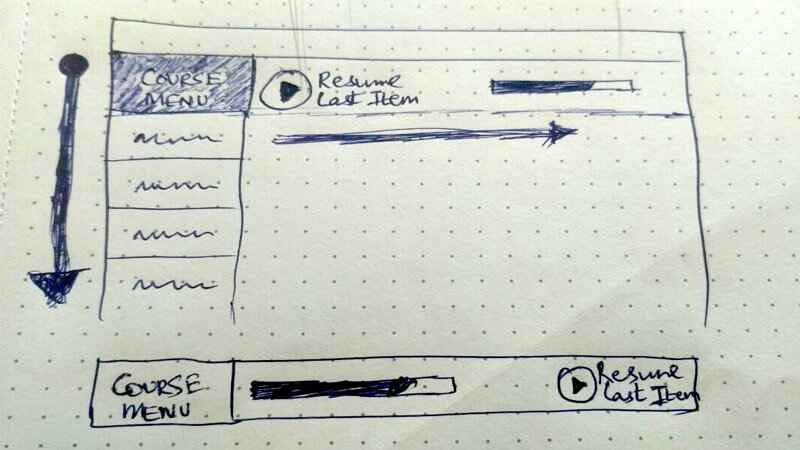 COURSE
MENU
Resume
Last Item
COURSE
MENU
Resume
Last Item